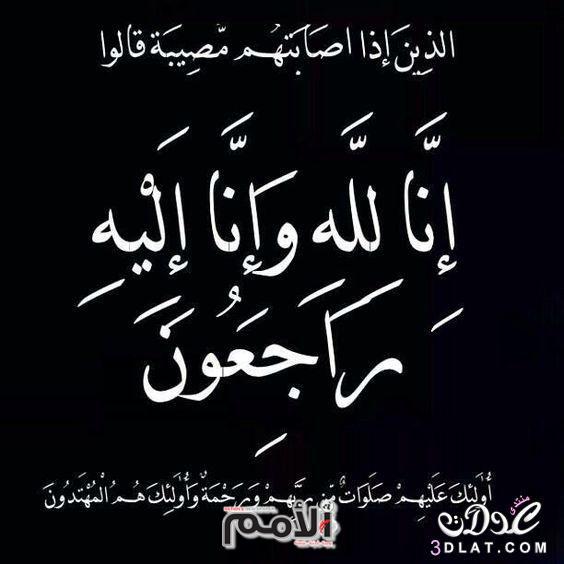 الذِينَ إذا اصَابَتهُم مّصِيبَة قالوا
إِنَّا لِلَّه وَإِنَّا إِلَيْهِ
رَاجِعُونَ
أُوْلَئِكَ عَلَيْهِمْ صَلَوَاتٌ مِّن رَبِّهِمْ وَرَحْمَةٌ وَأُوْلَئِكَ هُمُ الْمُهْتَدُونَ
الأمم
منتدى
عدلات
3DLAT.COM